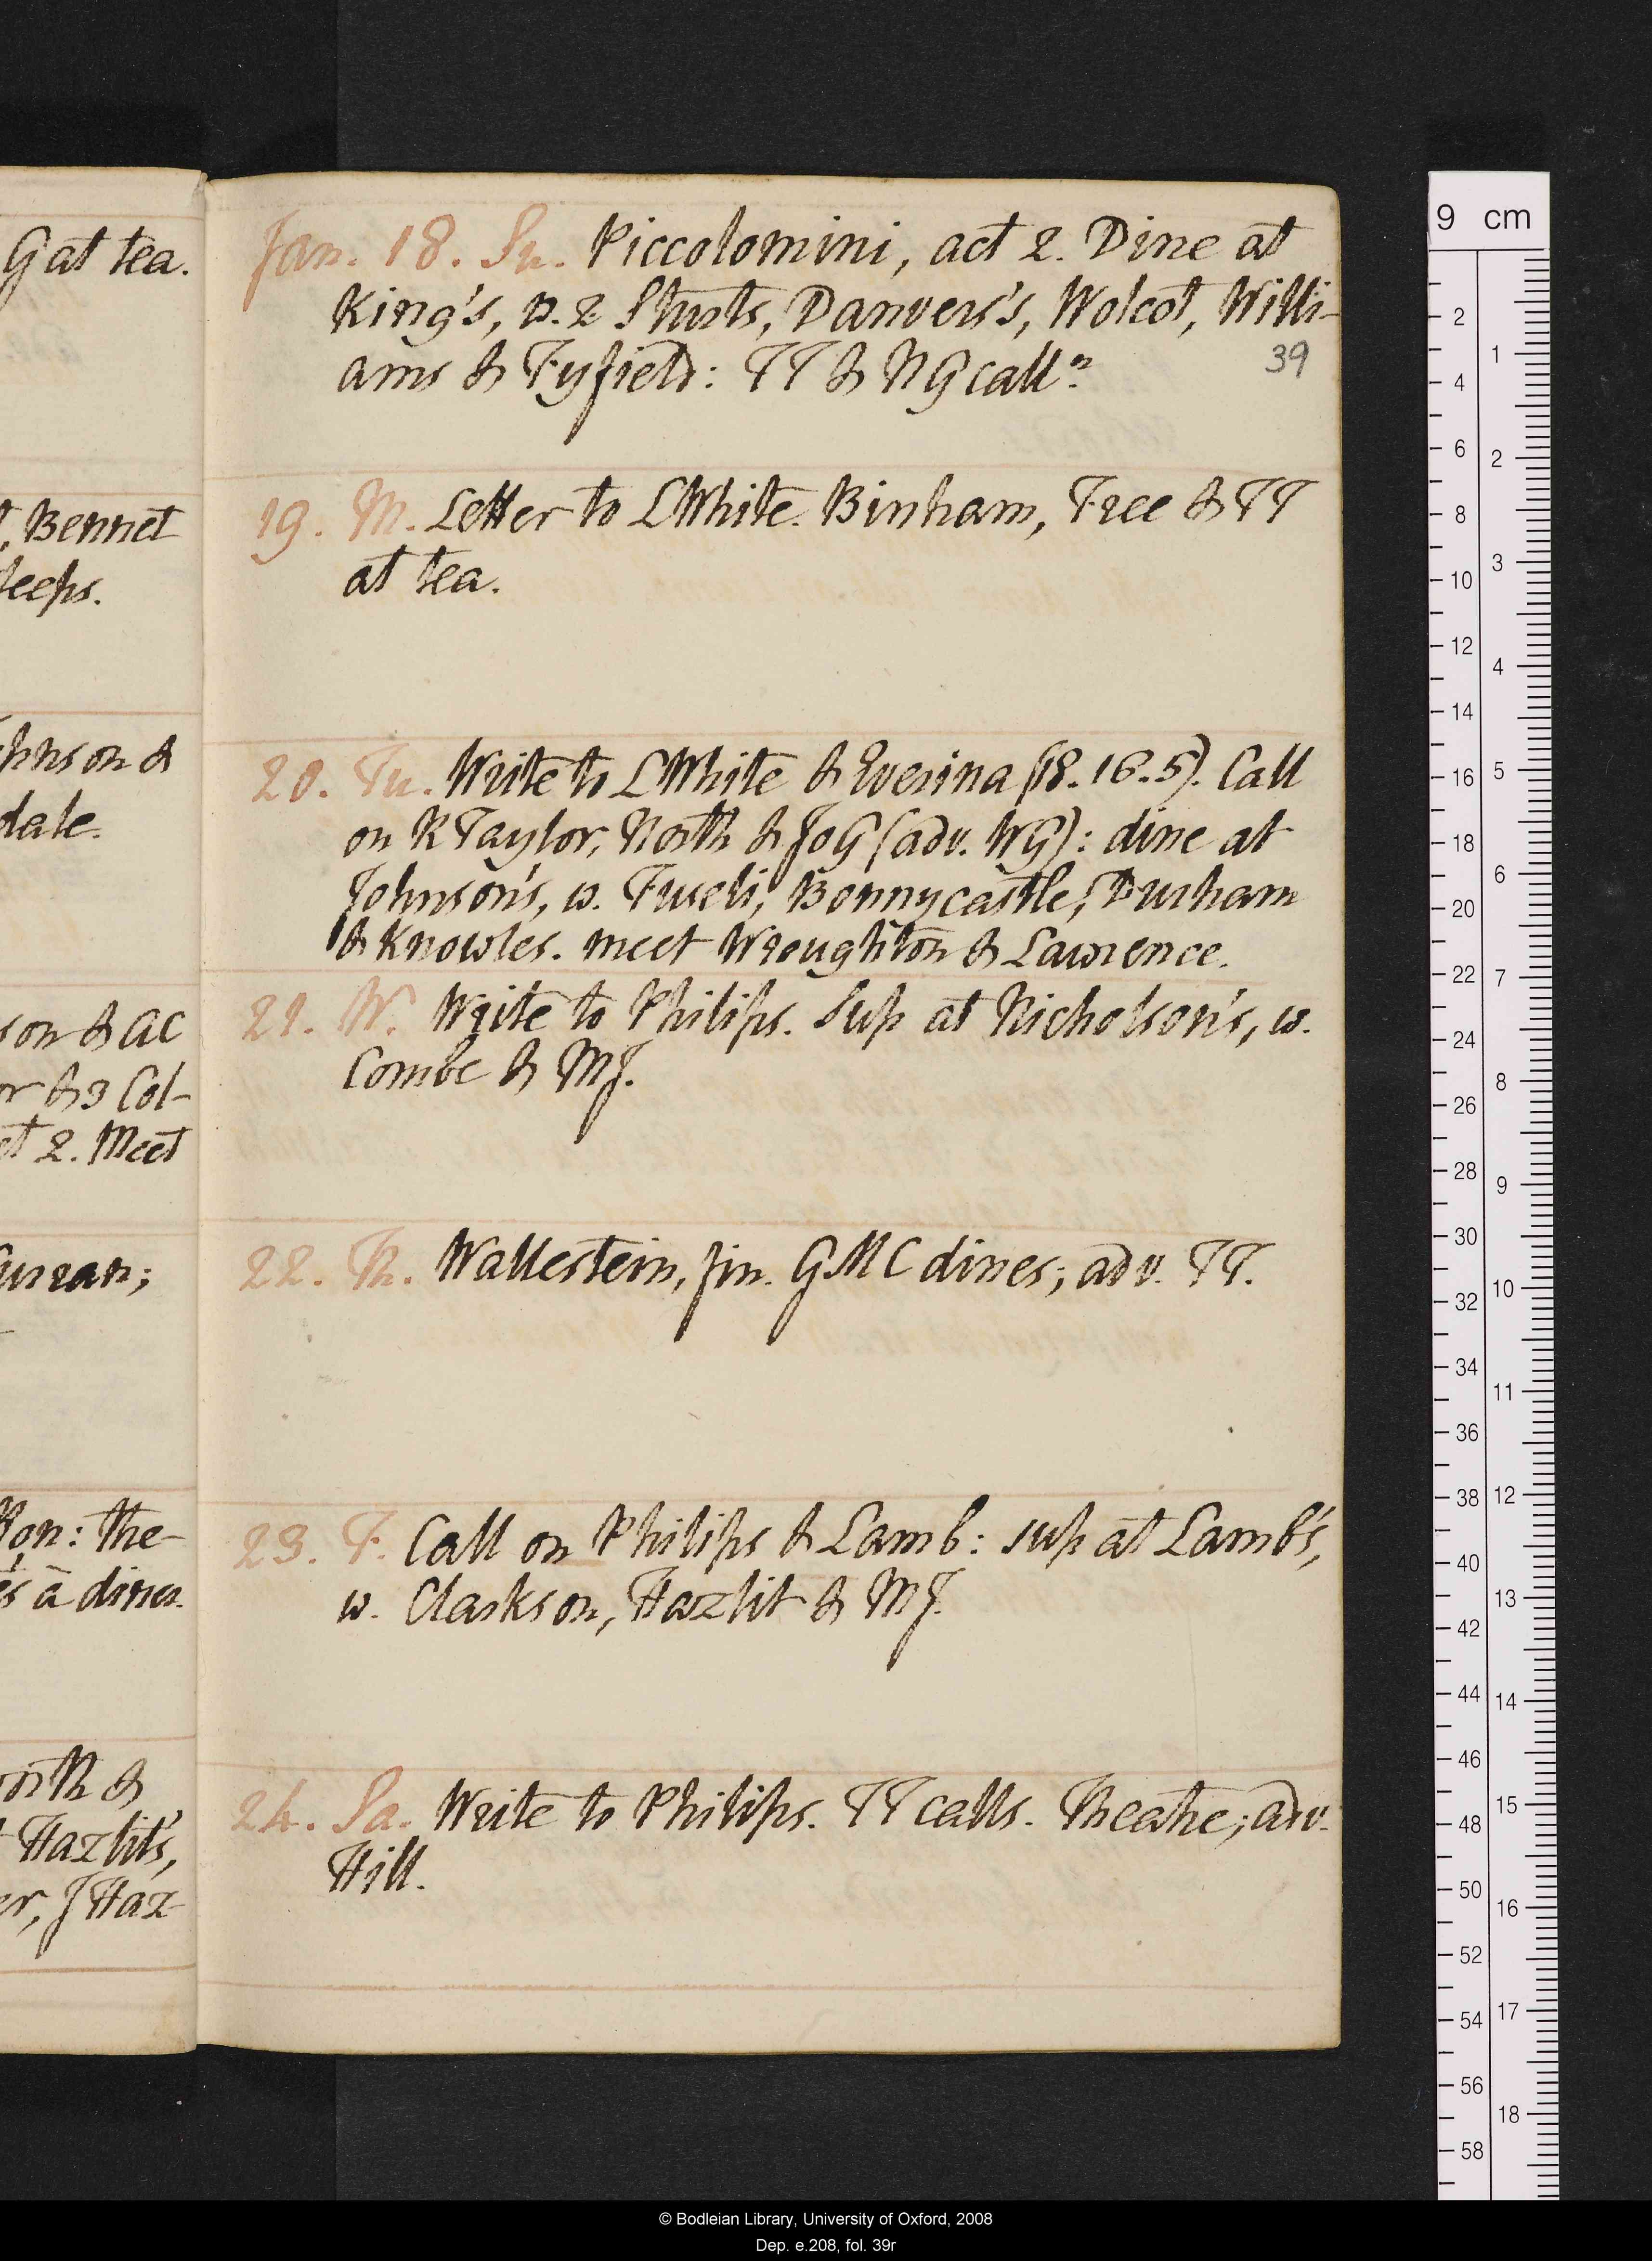 G at tea.
, Bennet
leeps.
hnson &
dale.
son & AC
r & 3 Col-
ct 2. Meet
urran;
ton: the-
es a dines.
orth &
Hazlit's,
er, J Haz-
Jan. 18. Su. Piccolomini, act 2. Dine at
King's, w. 2 Sturts, Danvers's, Wolcot, Willi-
ams & Fyfield: TT & NG call n.
39
19. M. Letter to LWhite. Binham, Free & TT
at tea.
20. Tu. Write to LWhite & Everina (18. 16. 5). Call
on RTaylor, North & JoG (adv. WG): dine at
Johnson's, w. Fuseli, Bonnycastle, Durham
& Knowles. meet Wroughton & Lawrence.
21. W. Write to Philips. Sup at Nicholson's, w.
Combe & MJ.
22. Th. Wallestein, fin. GMC dines; adv. TT.
23. F. Call on Philips & Lamb: sup at Lamb's,
w. Clarkson, Hazlit & MJ.
24. Sa. Write to Philips. TT calls. Theatre; adv.
Hill.
9 cm
2
4
6
8
10
12
14
16
18
20
22
24
26
28
30
32
34
36
38
40
42
44
46
48
50
52
54
56
58
1
2
3
4
5
6
7
8
9
10
11
12
13
14
15
16
17
18
© Bodleian Library, University of Oxford, 2008
Dep. e.208, fol. 39r